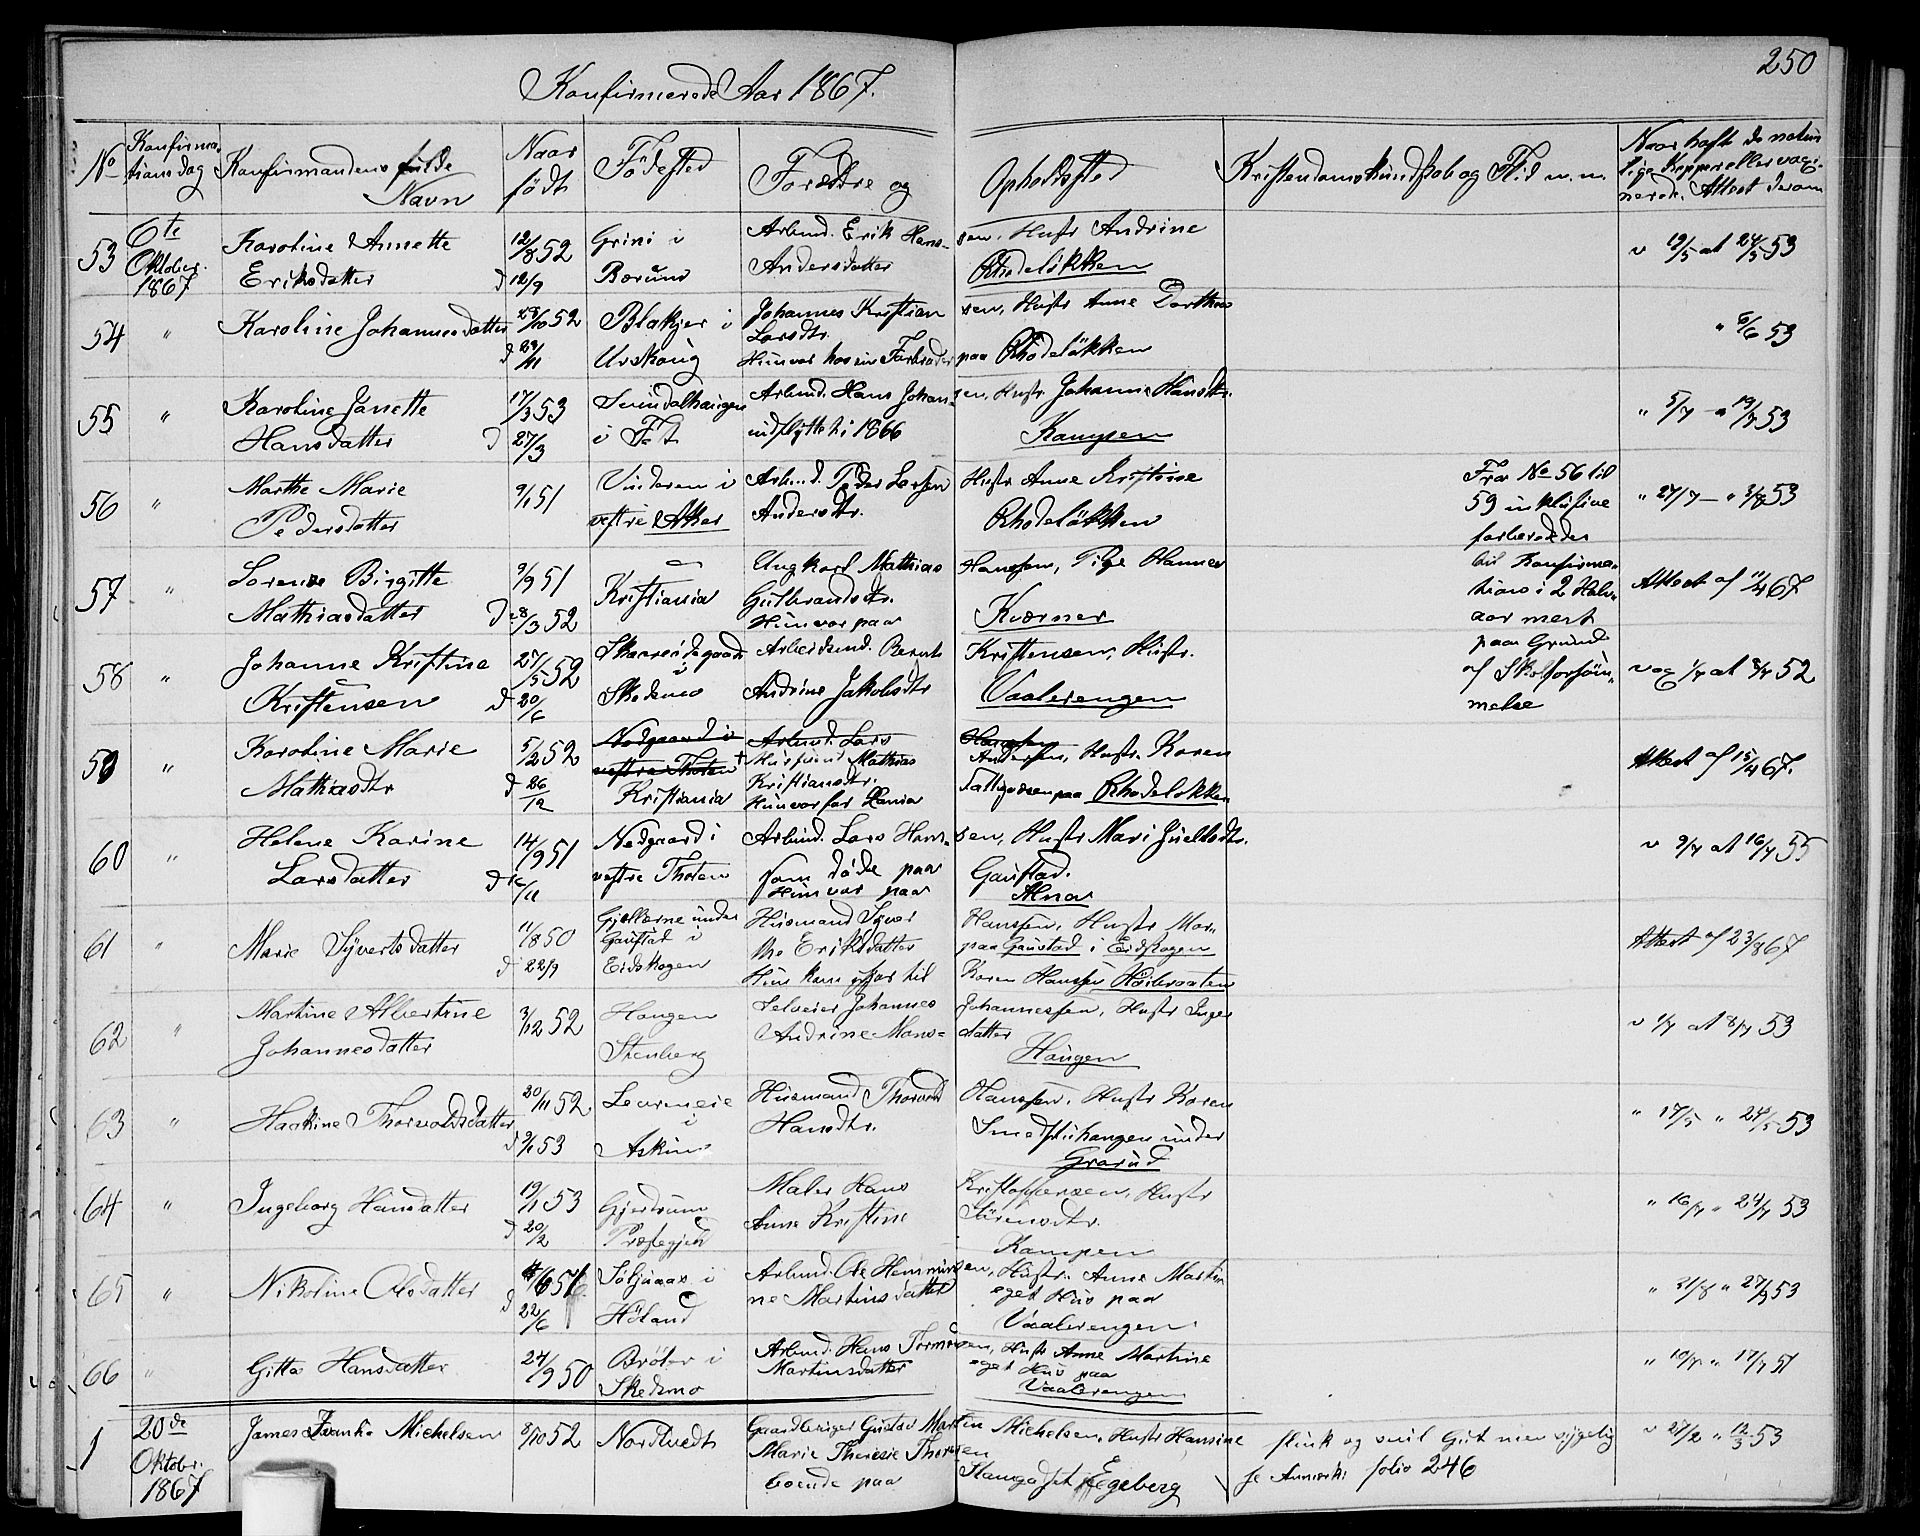 250
Konfirmerede Aar 1867.
No Konfirmationsdag Konfirmandens fulde Navn Naar født Fødested Forældre og Opholdssted Kristendomskundskab og Flid m. m. Naar havt de naturlige Kopper eller vaccinerede. Attest derom
53 6te Oktober 1867 Karoline Annette Eriksdatter 12/8 52 d 12/9 Grini i Bærum Arbmd. Erik Hansen, Hustr Andrine Andersdatter Rhodeløkken v 19/5 at 24/5 53
54 " Karoline Johannesdatter 28/10 52 d 29/11 Blakjer i Urskoug Johannes Kristiansen, Hustr Anne Dorthea Larsdtr. Hun var hos sin Farbroder paa Rhodeløkken " 6/6 53
55 " Karoline Janette Hansdatter 17/3 53 d 27/3 i Fet Arbmd. Hans Johansen, Hustr. Johanne Hansdtr. indflyttet i 1866 Kampen " 5/7 - " 19/7 53
56 " Marthe Marie Pedersdatter 9/1 51 Vinderen i vestre Aker Arbmd. Peder Larsen Hustr Anne Kristine Andersdtr. Rhodeløkken Fra No 56 til 59 inklusive forberedes til Konfirmation i 2 Halvaar mest paa Grund af Skoleforsømmelse " 27/7 - " 3/8 53
57 " Lorense Birgitte Mathiasdatter 9/9 51 d 28/3 52 Kristiania Ungkarl Mathias Hanssen, Pige Hanna Gulbrandsdtr. Hun var paa Kværner Attest af 11/4 67
58 " Johanne Kristine Kristensen 27/5 52 d 20/6 i Skedsmo Arbeidsmd. Bernt Kristensen, Hustr. Andrine Jakobsdtr Vaalerengen vac 1/7 at 8/7 52
59 " Karoline Marie Mathiasdtr 5/12 52 d 26/12 Nedgaard i vestre Thoten Kristiania Arbmd. Lars Hanssen Husmand Mathias Andersen, Hustr. Karen Kristiansdtr. Hun var for Fattigvæsen paa Rhodeløkken Attest af 15/4 67.
60 " Helene Karine Larsdatter 14/9 51 d 16/11 Nedgaard i vestre Thoten Arbmd. Lars Hansen, Hustr Mari Juelsdtr. som døde paa Gaustad. Hun var paa Alna v 9/7 at 16/7 55
61 " Marie Syvertsdatter 11/8 50 d 22/9 Gjellerne under Gaustad i Eidskogen Husmand Syver Hanssen, Hustr Marthe Eriksdatter paa Gaustad i Eidskogen Hun kom ifjor til Karen Hanssen Høibraaten Attest af 23/8 67
62 " Martine Albertine Johannesdatter 3/12 52 Haugen Stenberg Selveier Johannes Johannessen, Hustr Inger Andrine Monsdatter Haugen v 1/7 at 8/7 53
63 " Haakine Thorvaldsdatter 20/11 52 d 2/1 53 i Askim Husmand Thorvald Hanssen, Hustr Karen Hansdtr. Smedstuhaugen under Grorud " 17/5 " 24/5 53
64 " Ingeborg Hansdatter 19/1 53 d 20/2 Gjerdrum Præstegjeld Maler Hans Kristoffersen, Hustr Anne Kristine Sørensdtr. Kampen " 16/7 " 24/7 53
65 " Nikoline Olsdatter 4/6 51 d 22/6 i Høland Arbmd. Ole Hemmingsen, Hustr. Anne Martine Martinsdatter eget Hus paa Vaalerengen. " 21/8 " 27/8 53
66 " Gitta Hansdatter 24/9 50 Brøter i Skedsmo Arbmd. Hans Hustr Anne Martine Martinsdatter eget Hus paa Vaalerengen " 10/7 " 17/7 51
1 20de Oktobr. 1867 James Franke Michelsen 8/10 52 Nordtvedt Gaardbruger Gustav Martin Michelsen, Hustr Hansine Marie Theresie Thoresen boende paa Egeberg flink og snil Gut men sygelig se Anmærk: folio 246 v 27/2 " 12/3 53